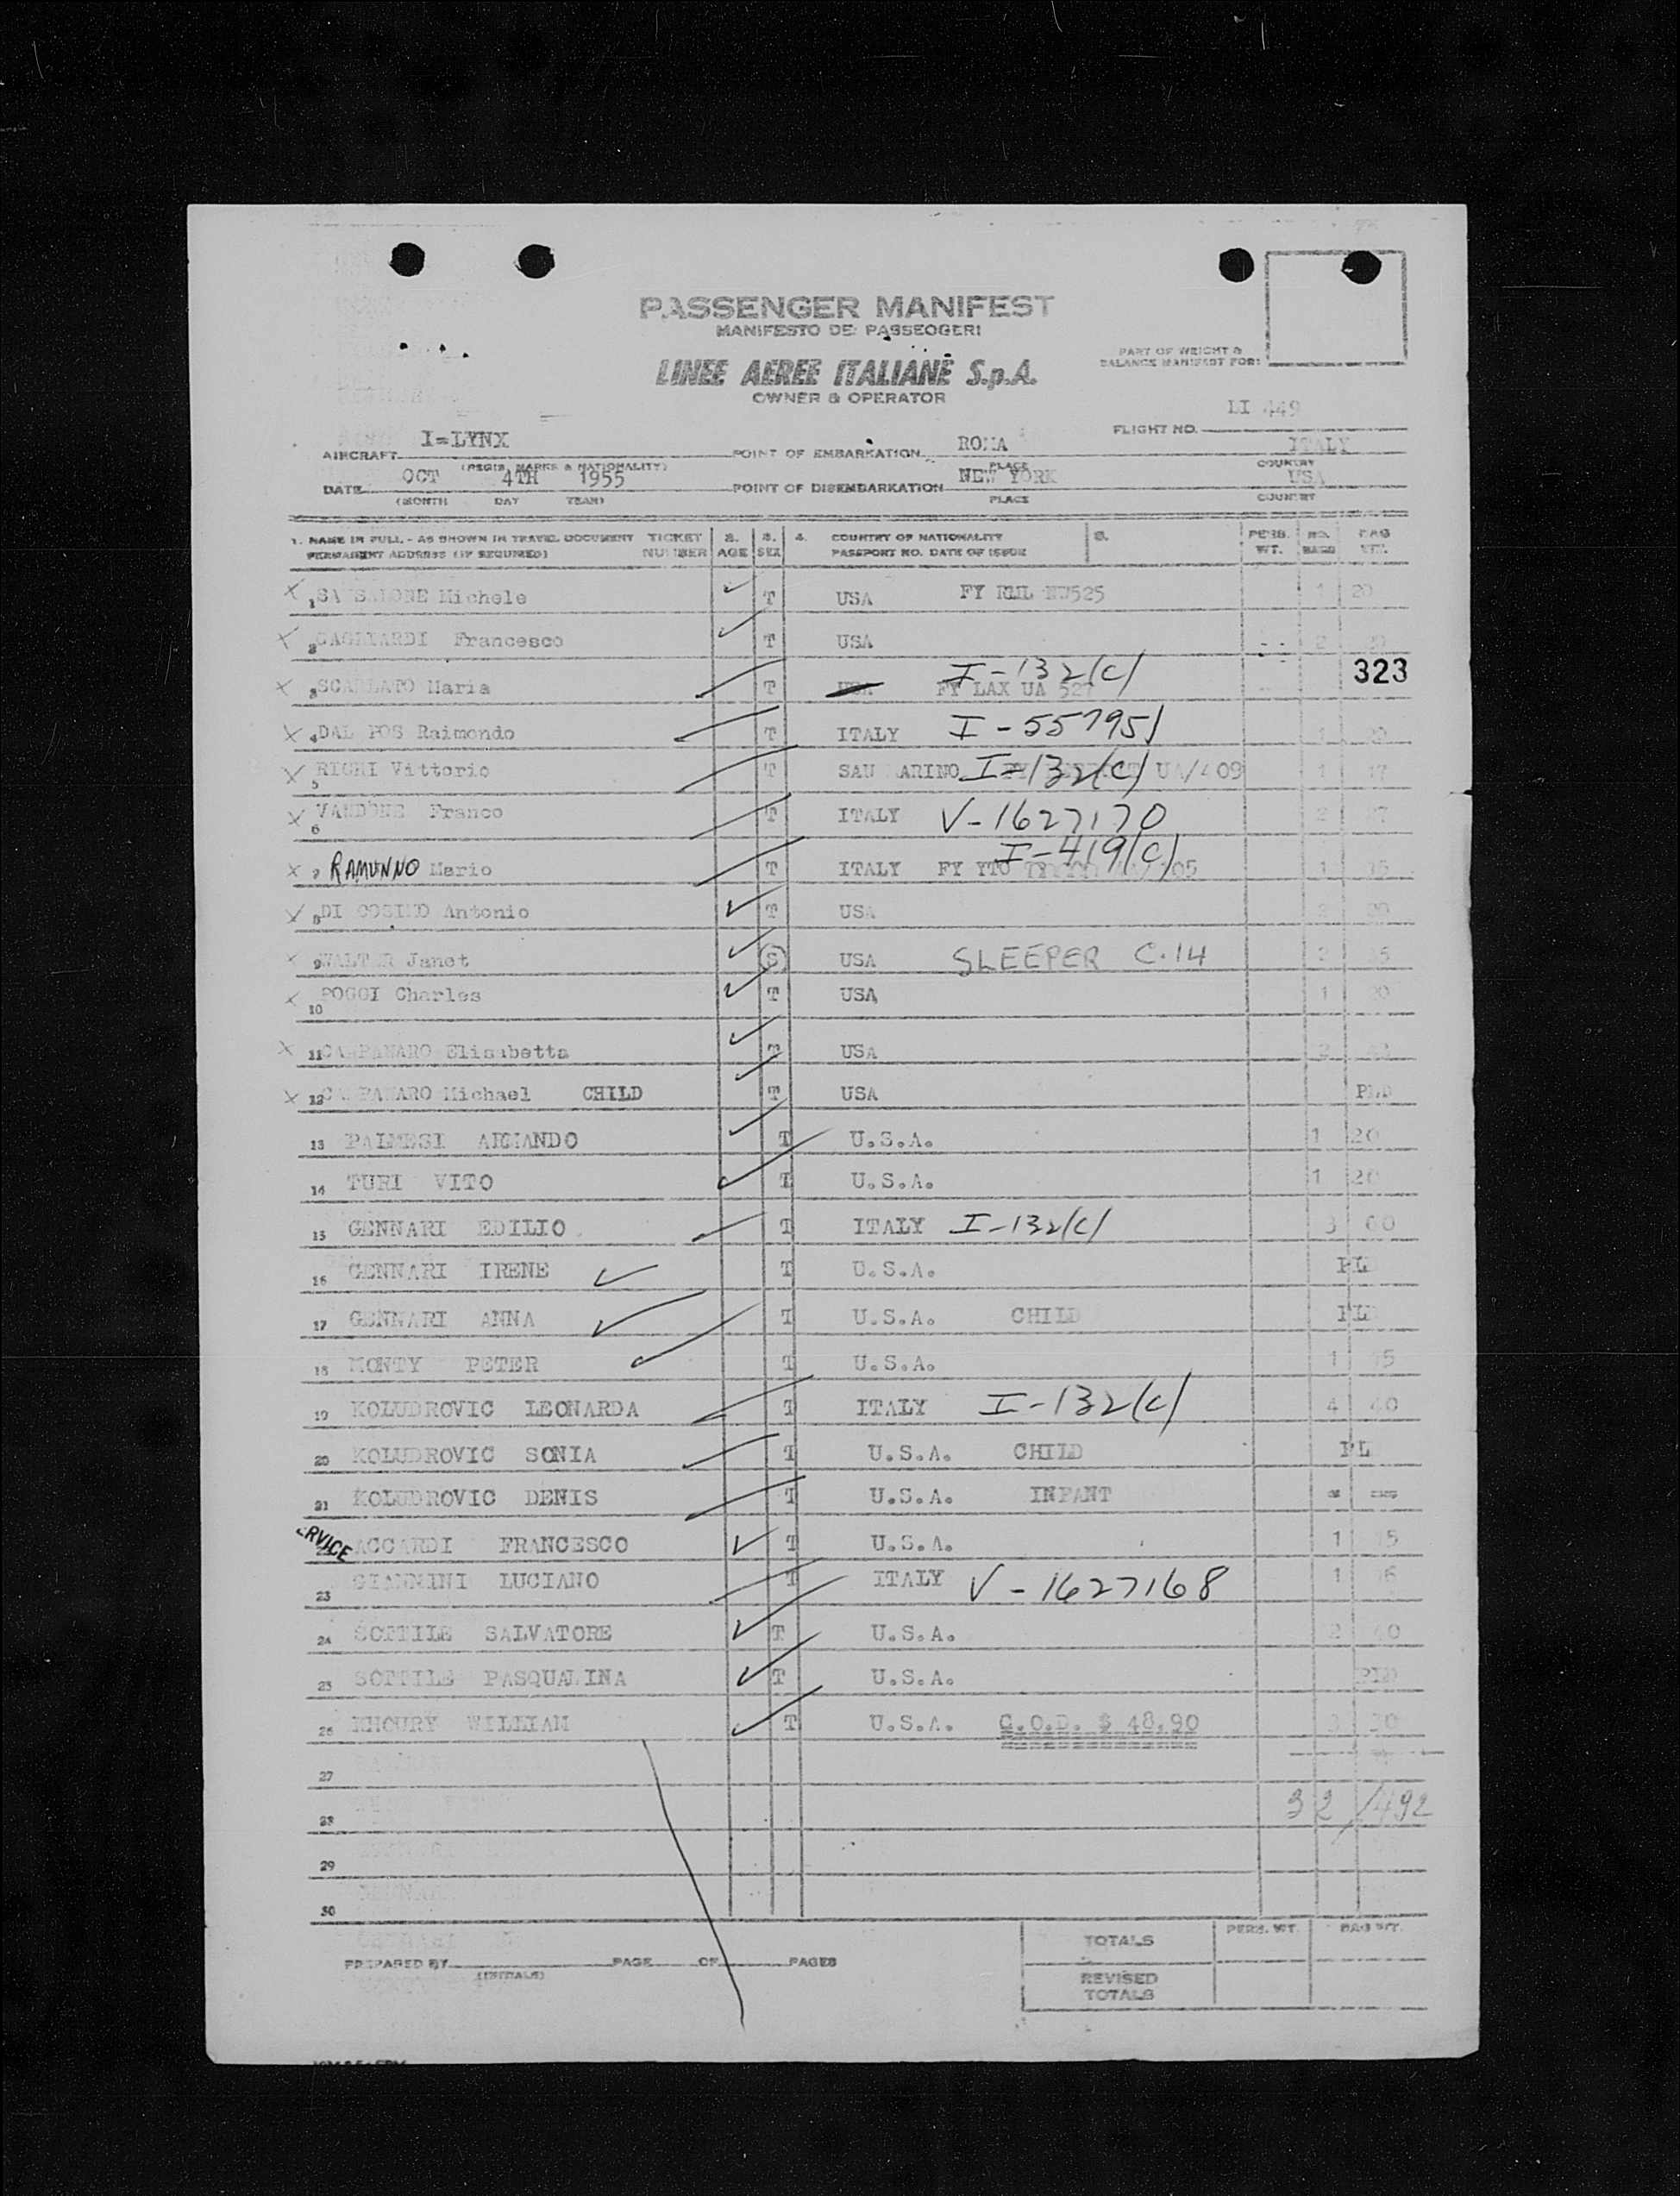 PASSENGER MANIFEST
MANIFESTO DEI PASSEGGERI
LINEE AEREE ITALIANE S.p.A.
OWNER & OPERATOR
PART OF WEIGHT &
BALANCE MANIFEST FOR:
FLIGHT NO. LI 449
AIRCRAFT I-LYNX POINT OF EMBARKATION ROMA ITALY
(REGIS. MARKS & NATIONALITY) PLACE COUNTRY
DATE OCT 4TH 1955 POINT OF DISEMBARKATION NEW YORK USA
(MONTH DAY YEAR) PLACE COUNTRY
1. NAME IN FULL - AS SHOWN IN TRAVEL DOCUMENT TICKET 2. 3. 4. COUNTRY OF NATIONALITY 5. PERS. NO. BAG
PERMANENT ADDRESS (IF REQUIRED) NUMBER AGE SEX PASSPORT NO. DATE OF ISSUE WT. BAGS WT.
1 Michele T USA 1 20
2 GAGLIARDI Francesco T USA 2
323
3 SCARLATO Maria T USA FY LAX UA 527 I-132(C)
4 DAL POS Raimondo T ITALY I-557951 1
5 RIGHI Vittorio T SAN MARINO I-132(C) UA/409 1 17
6 VANDONE Franco T ITALY V-1627170 2
7 RAMUNNO Mario T ITALY FY YTO I-419(C) 1
8 DI COSIMO Antonio T USA
9 WALTER Janet S USA SLEEPER C.14 2
10 POGGI Charles T USA 1 20
11 CAMPANARO Elisabetta T USA
12 CAMPANARO Michael CHILD T USA PLD
13 PALMESI ARMANDO T U.S.A. 1 20
14 TURI VITO T U.S.A. 1 20
15 GENNARI EDILIO T ITALY I-132(C) 3 60
16 GENNARI IRENE T U.S.A. PL
17 GENNARI ANNA T U.S.A. CHILD PL
18 MONTY PETER T U.S.A. 1 15
19 KOLUDROVIC LEONARDA T ITALY I-132(C) 4 40
20 KOLUDROVIC SONIA T U.S.A. CHILD PL
21 KOLUDROVIC DENIS T U.S.A. INFANT
ERVICE ACCARDI FRANCESCO T U.S.A. 1 15
23 GIANNINI LUCIANO T ITALY V-1627168 1 16
24 SOTTILE SALVATORE T U.S.A. 2 40
25 SOTTILE PASQUALINA T U.S.A. PLD
26 KHOURY WILLIAM T U.S.A. C.O.D. $ 48,90 3 30
27
28 32/492
29
30
PERS. WT. BAG WT.
TOTALS
PREPARED BY PAGE OF PAGES
(INITIALS)
REVISED
TOTALS